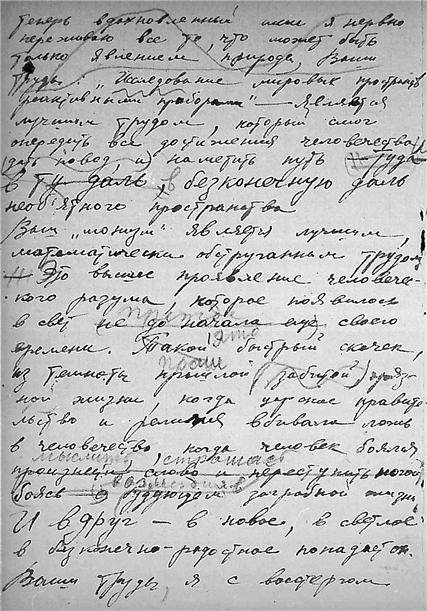 теперь вдохновленный ими я нервно
переживаю все то, что может быть
только явлением природы, Ваши
труды: "Исследование мировых пространств
реактивными приборами" — является
лучшим трудом, который смог
опередить все достижения человечества
(дать повод, и) наметить путь туда
в ту даль, в безконечную даль
необъятного пространства
Ваш "монизм" является лучшим,
математически обструганным трудом
Это высшее проявление человечес-
кого разума, которое появилось
в свет не до начала еще своего
времени. Такой быстрый скачек,
из темноты прошлой рабской
ной жизни когда ужасное правите-
льство и религия вбивала ложь
в человечество, когда человек боялся
мыслить, страшась
произнести слово перестулить ногой
боясь о будующем загробной жизни
И вдруг — в новое, в светлое
в безконечно-радостное попадает он.
Ваши труды, я с восторгом